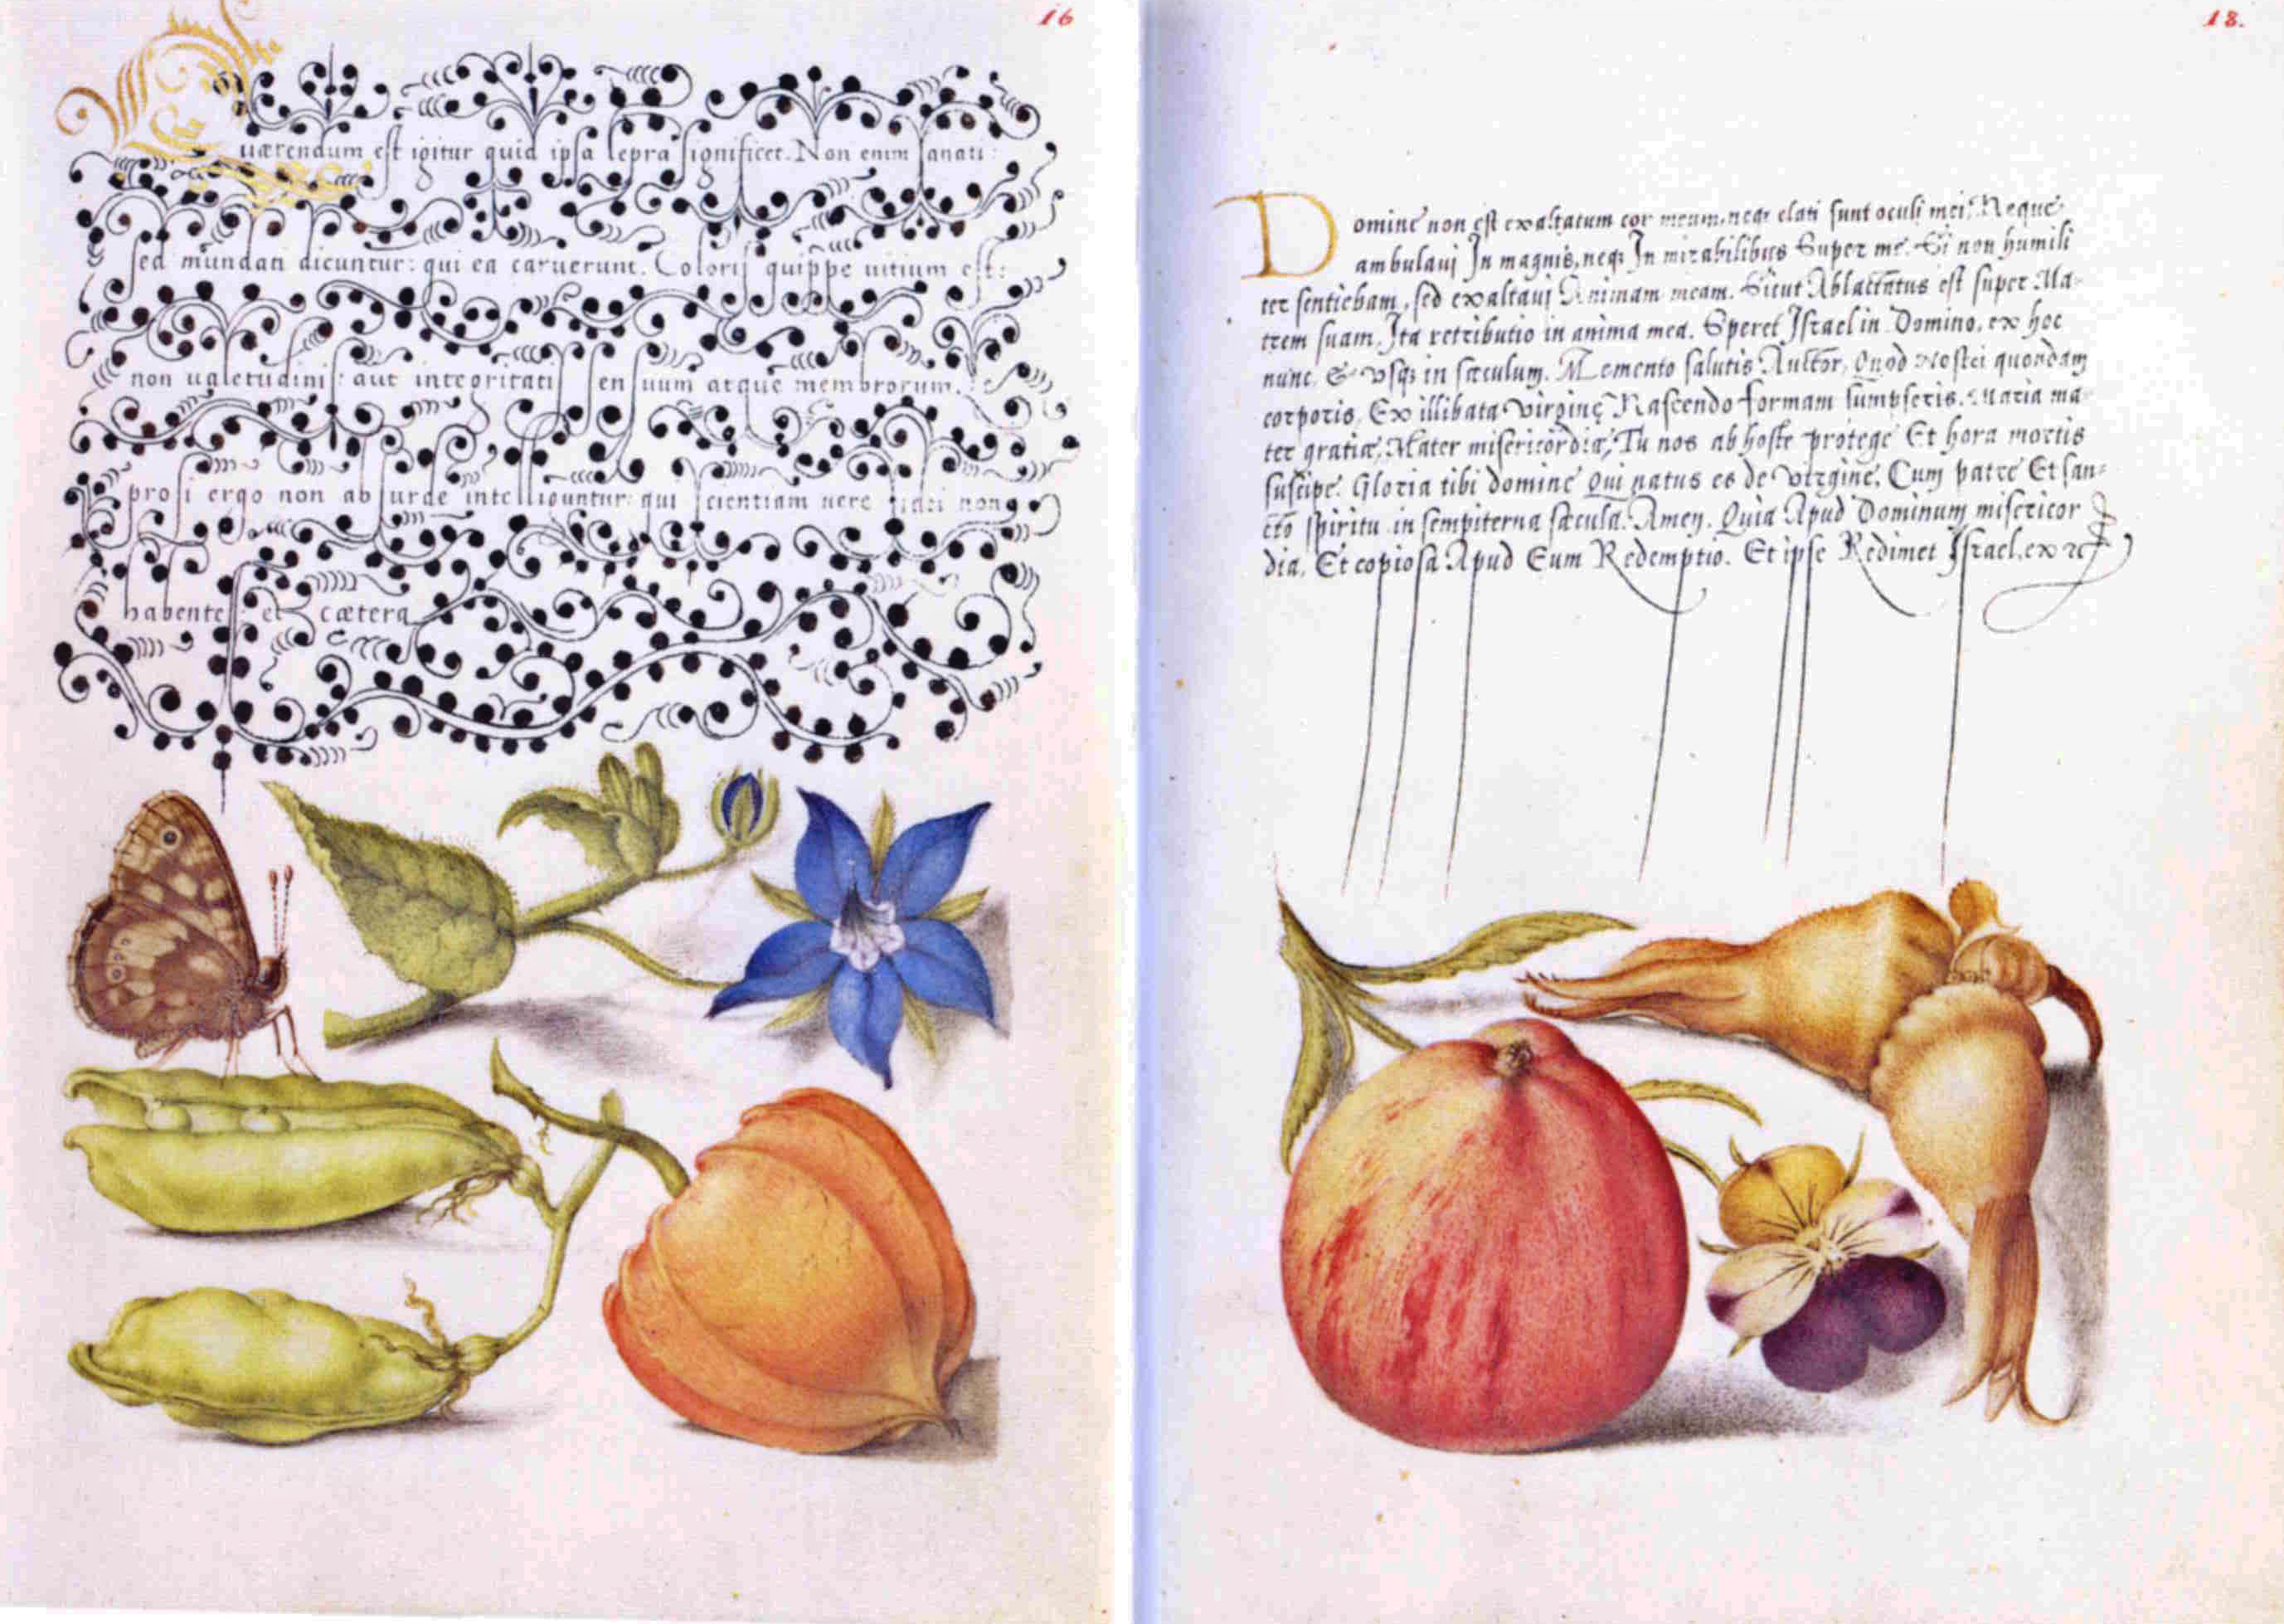 16
Quærendum est igitur quid ipsa lepra significet. Non enim sanati:
sed mundati dicuntur: qui ea caruerunt. Coloris quippe uitium est:
non ualetudinis: aut integritatis sensuum atque membrorum.
prosi ergo non absurde intelliguntur: qui scientiam uere fidei non
habentes et cætera
18.
Domine non est exaltatum cor meum, neq; elati sunt oculi mei: Neque
ambulaui In magnis, neq; In mirabilibus Super me. Si non humili
ter sentiebam, sed exaltaui Animam meam. Sicut Ablactatus est super Ma-
trem suam, Ita retributio in anima mea. Speret Israel in Domino, ex hoc
nunc, & vsq; in sæculum. Memento salutis Auctor, Quod Nostri quondam
corporis, Ex illibata virgine Nascendo formam sumpseris. Maria ma-
ter gratiæ, Mater misericordiæ, Tu nos ab hoste protege Et hora mortis
suscipe. Gloria tibi domine Qui natus es de virgine, Cum patre Et san-
cto spiritu in sempiterna sæcula. Amen. Quia Apud Dominum misericor
dia, Et copiosa Apud Eum Redemptio. Et ipse Redimet Israel, ex